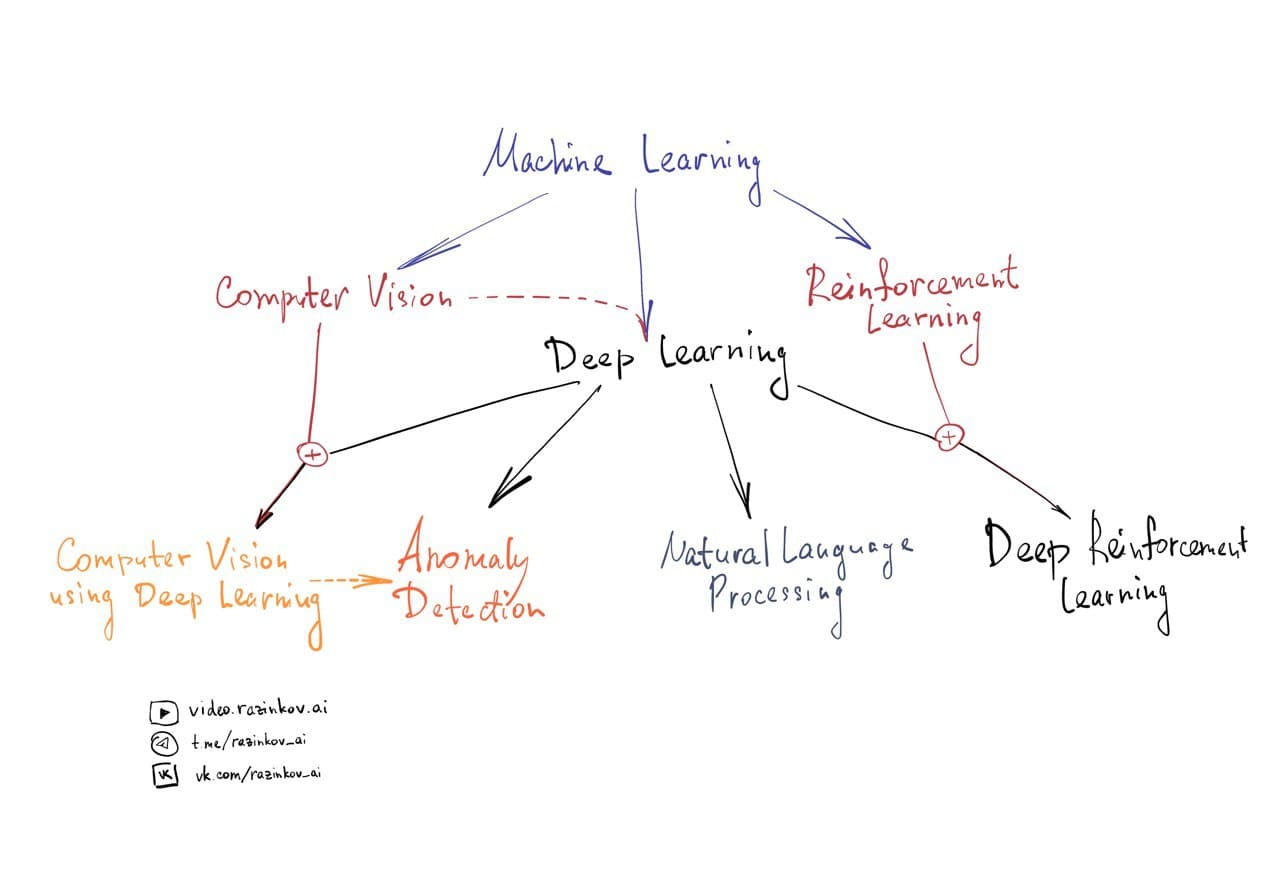 Machine Learning
Computer Vision
Reinforcement
Learning
Deep Learning
Computer Vision
using Deep Learning
Anomaly
Detection
Natural Language
Processing
Deep Reinforcement
Learning
video.razinkov.ai
t.me/razinkov_ai
VK vk.com/razinkov_ai